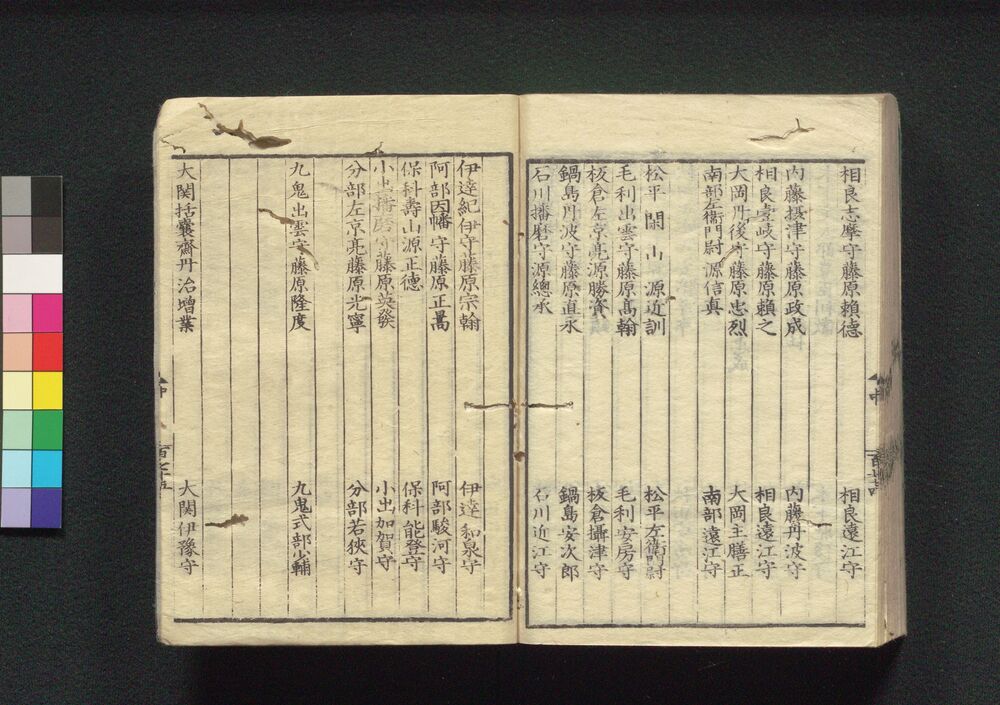 相良志摩守藤原賴德 相良遠江守
内藤摂津守藤原政成 内藤丹波守
相良壹岐守藤原賴之 相良遠江守
大岡丹後守藤原忠烈 大岡主膳正
南部左衞門尉源信真 南部遠江守
松平閑山源近訓 松平左衞門尉
毛利出雲守藤原高翰 毛利安房守
板倉左京亮源勝資 板倉攝津守
鍋島丹波守藤原直永 鍋島安次郎
石川播磨守源總承 石川近江守
伊達紀伊守藤原宗翰 伊達和泉守
阿部因幡守藤原正暠 阿部駿河守
保科壽山源正德 保科能登守
小出播磨守藤原英發 小出加賀守
分部左京亮藤原光寧 分部若狹守
九鬼出雲守藤原隆度 九鬼式部少輔
大関括囊齋丹治增業 大関伊豫守